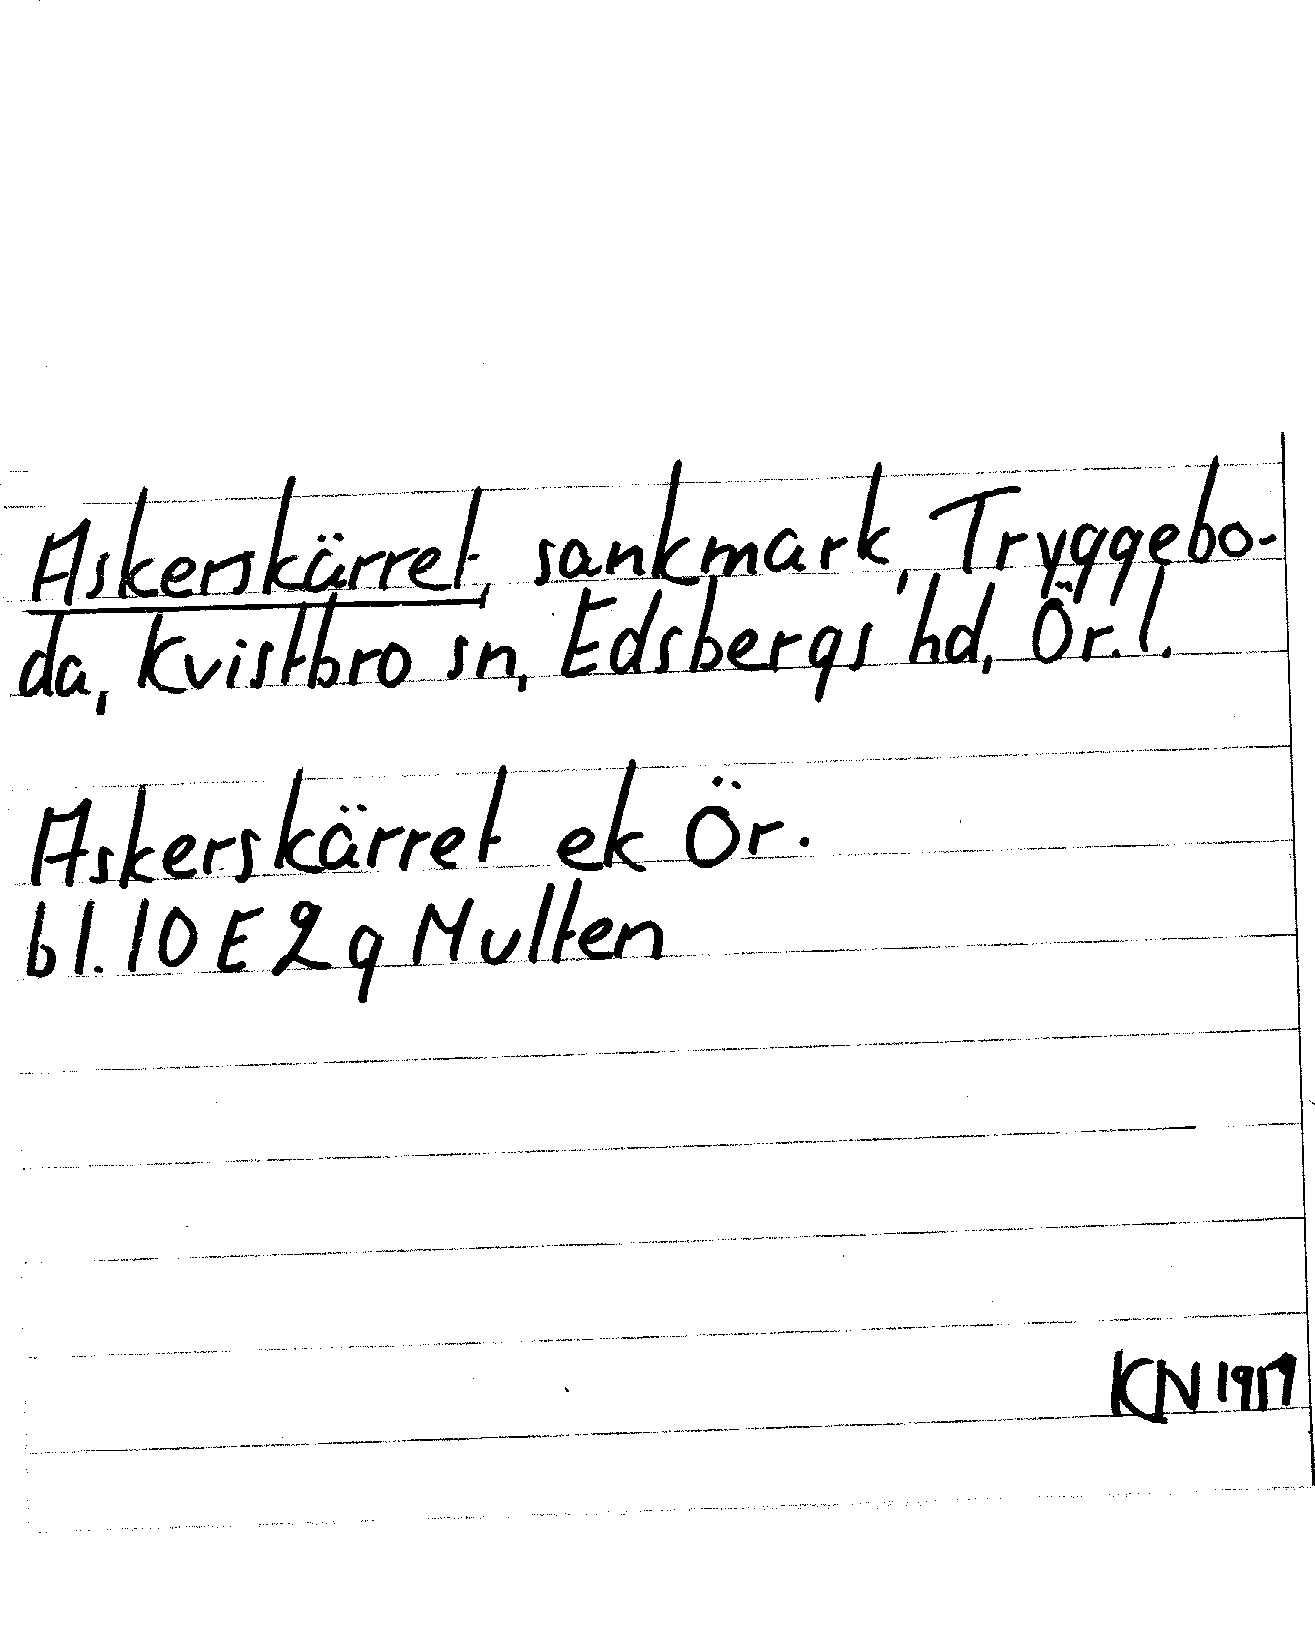 Askerskärret, sankmark, Tryggebo-
da, Kvistbro sn, Edsbergs hd, Ör. l.
Askerskärret ek Ör.
bl. 10 E 2 g Multen
KN